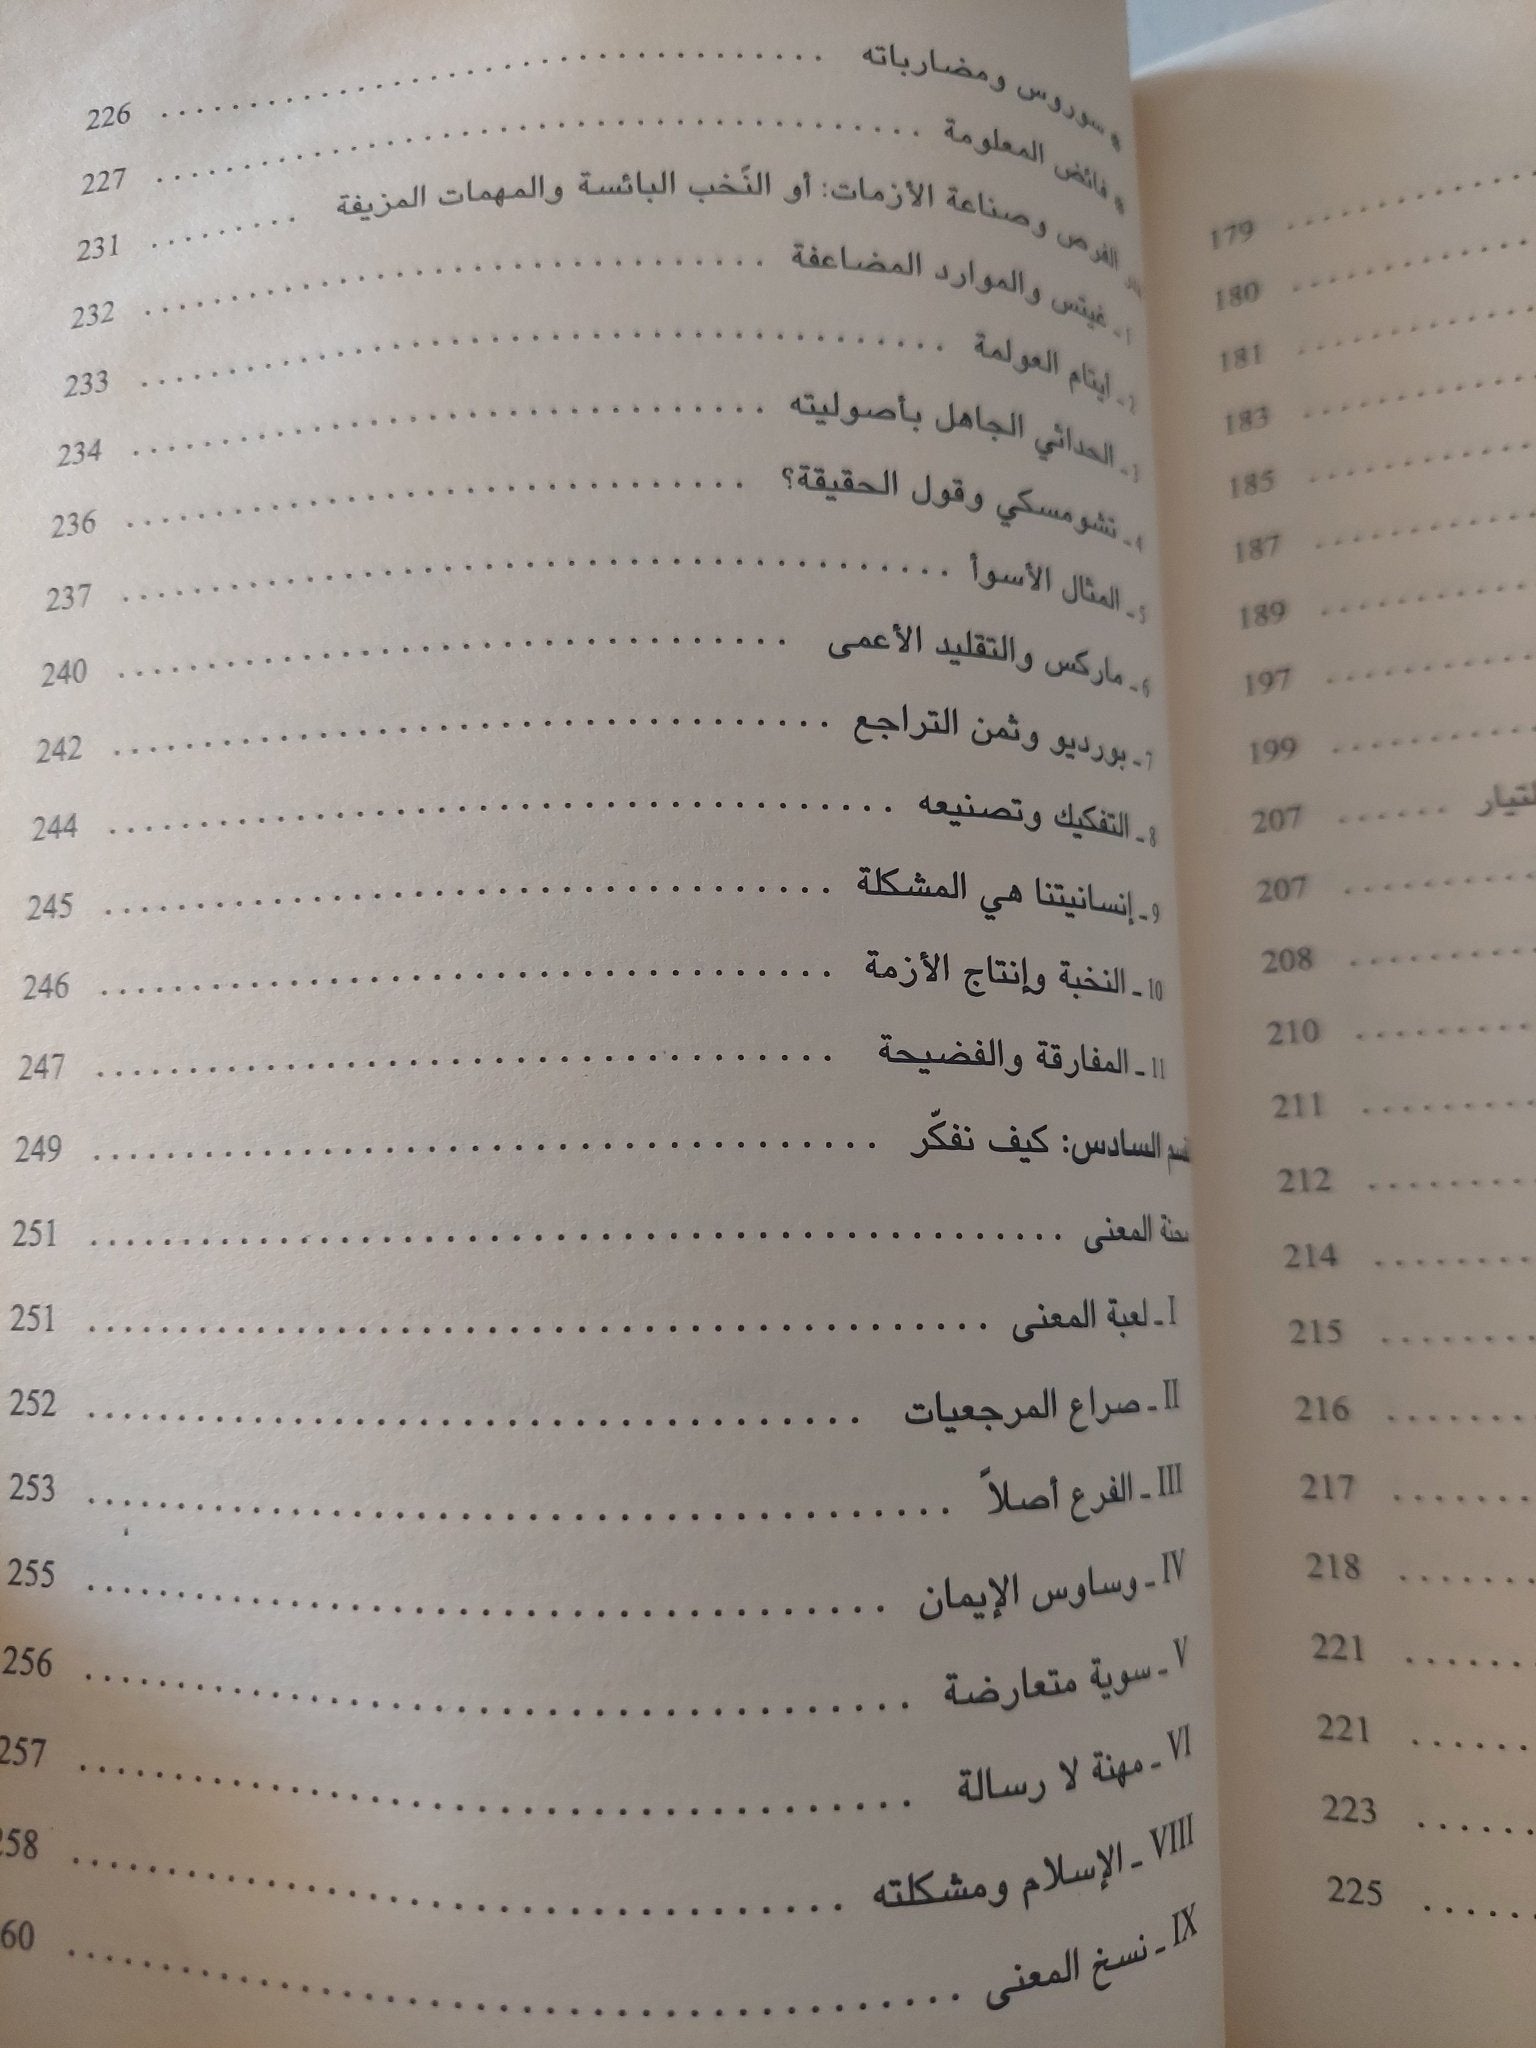 * سوروس ومضارباته 226
* فائض المعلومة 227
الفرص وصناعة الأزمات: أو النُخب البائسة والمهمات المزيفة 231
1 ـ غيتس والموارد المضاعفة 232
2 ـ أيتام العولمة 233
3 ـ الحداثي الجاهل بأصوليته 234
4 ـ تشومسكي وقول الحقيقة؟ 236
5 ـ المثال الأسوأ 237
6 ـ ماركس والتقليد الأعمى 240
7 ـ بورديو وثمن التراجع 242
8 ـ التفكيك وتصنيعه 244
9 ـ إنسانيتنا هي المشكلة 245
10 ـ النخبة وإنتاج الأزمة 246
11 ـ المفارقة والفضيحة 247
السادس: كيف نفكّر 249
المعنى 251
I ـ لعبة المعنى 251
II ـ صراع المرجعيات 252
III ـ الفرع أصلاً 253
IV ـ وساوس الإيمان 255
V ـ سوية متعارضة 256
VI ـ مهنة لا رسالة 257
VIII ـ الإسلام ومشكلته 258
IX ـ نسخ المعنى 60
179
180
181
183
185
187
189
197
199
207
207
208
210
211
212
214
215
216
217
218
221
221
223
225